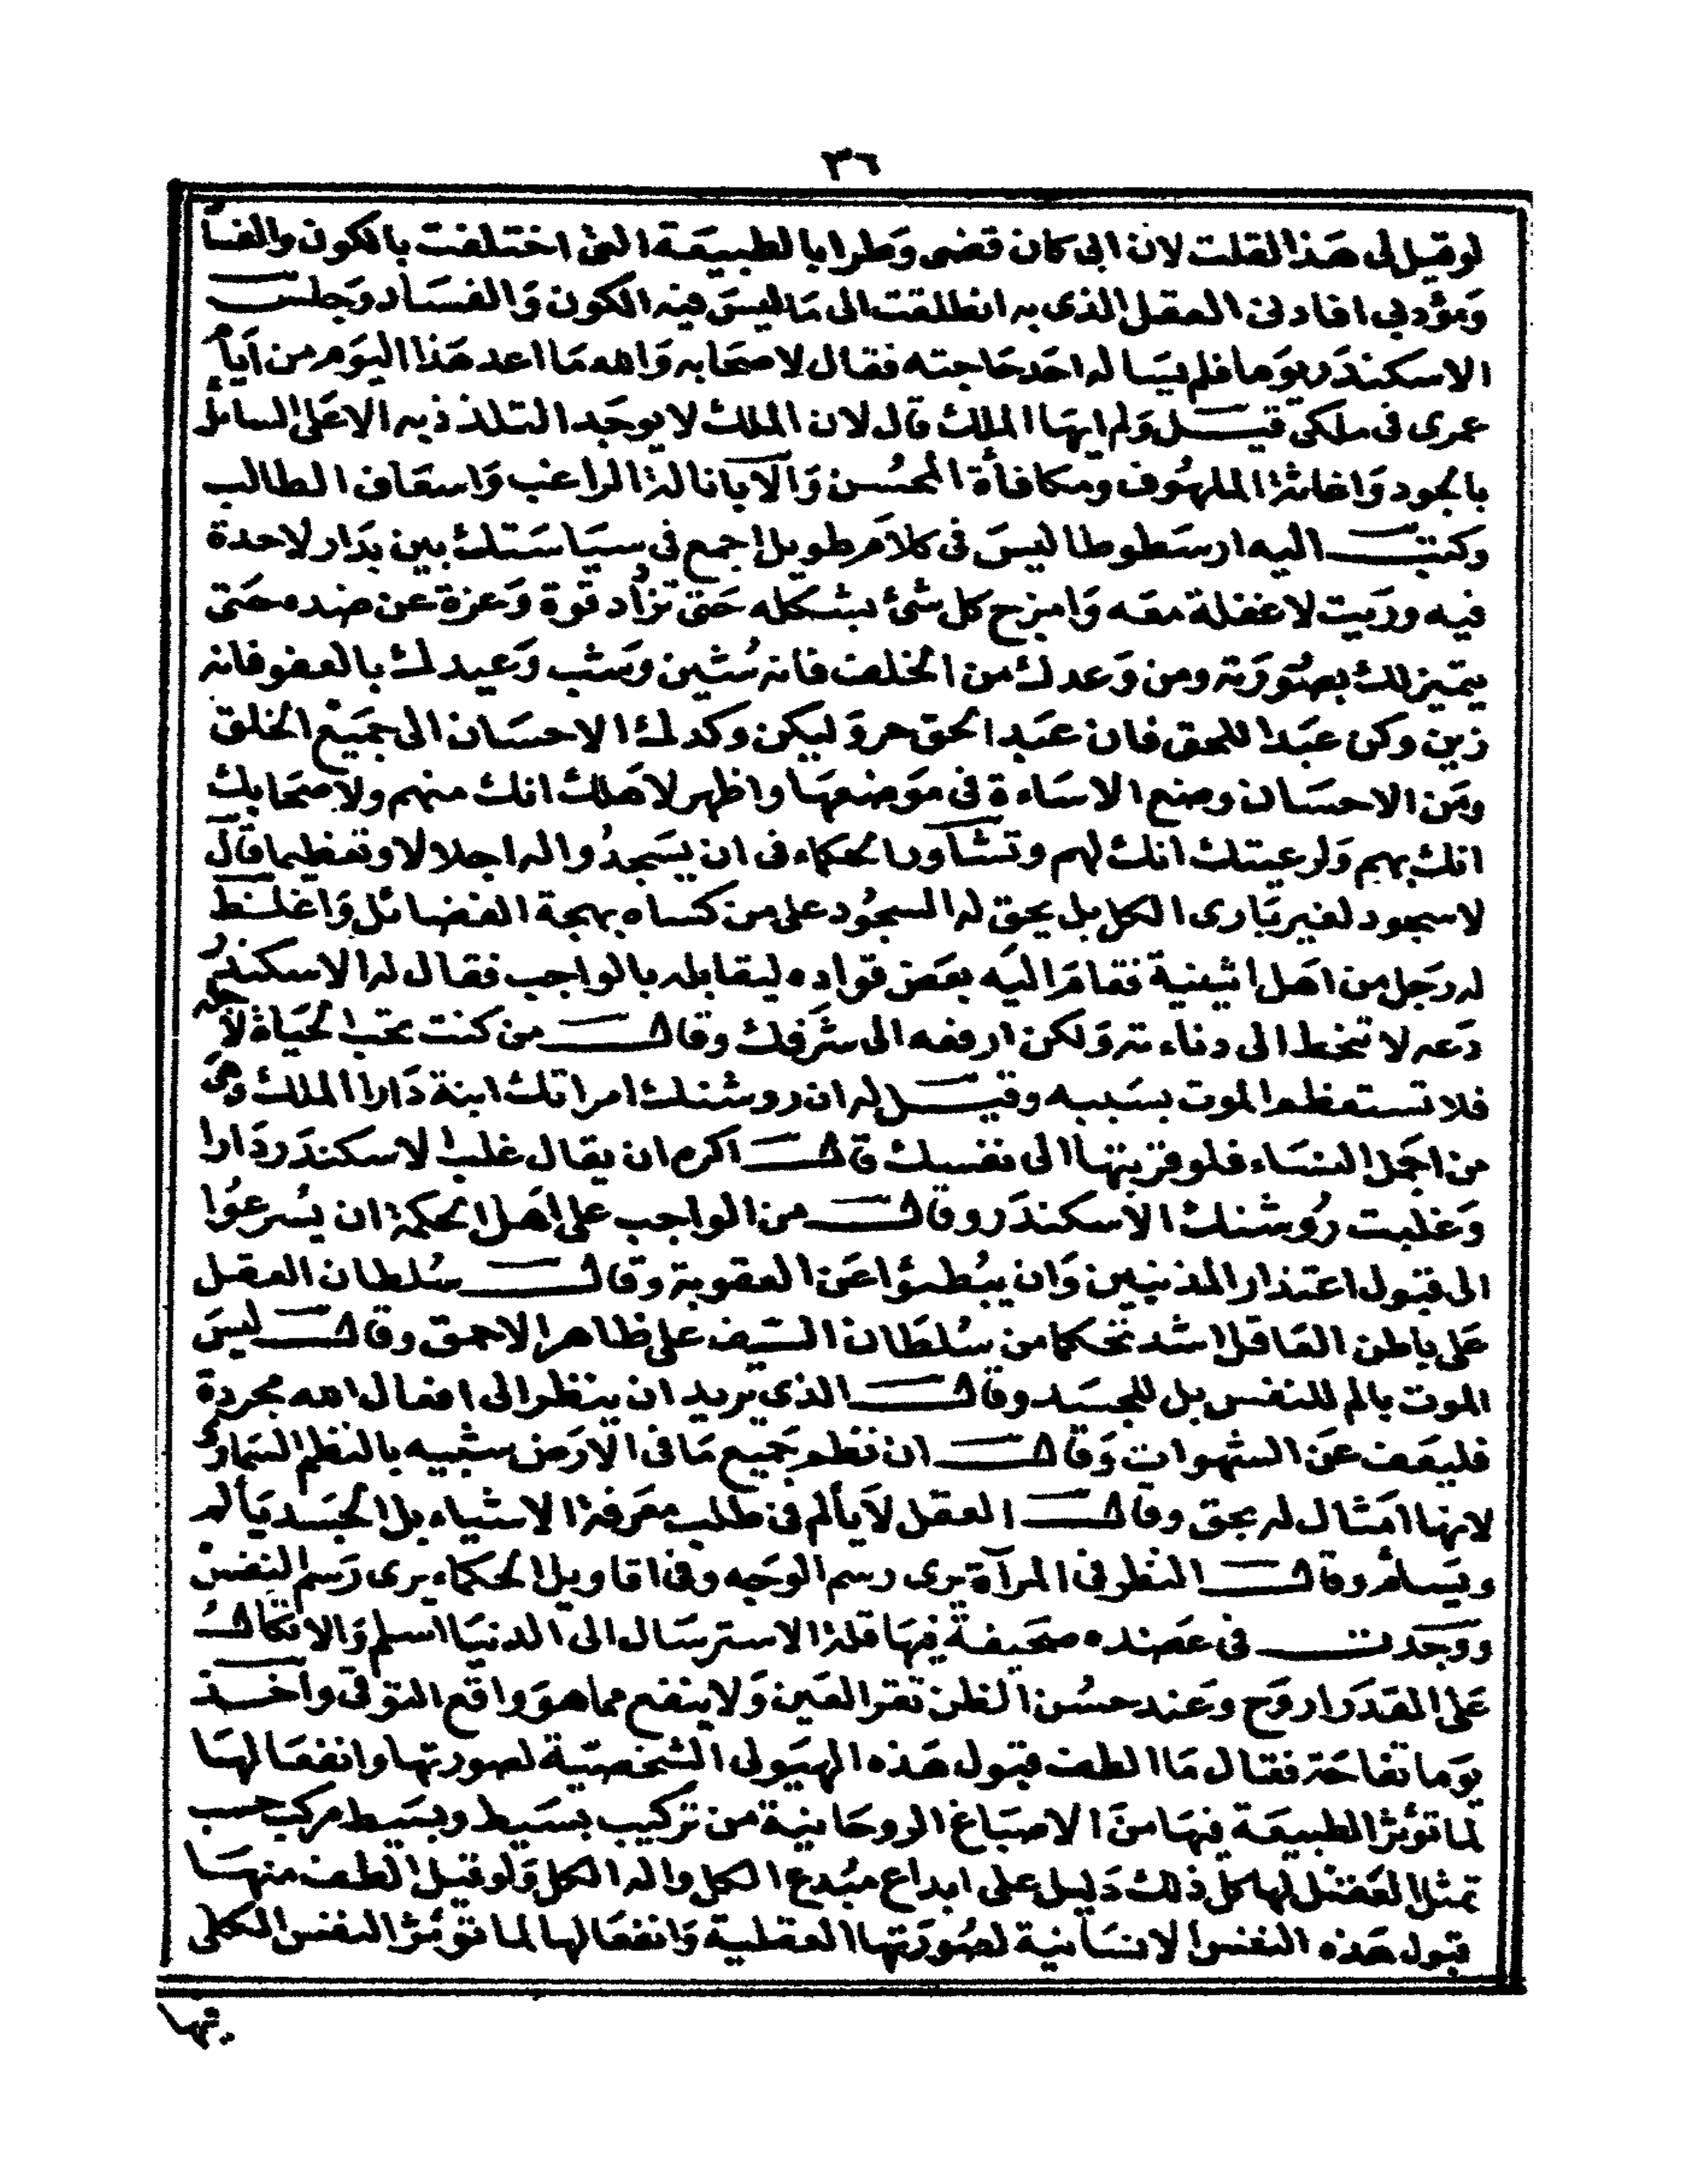 ٣٦
لو قيل لى هذا لقلت لان ابى كان قضى وطرا بالطبيعة التى اختلفت بالكون والفسا
ومؤدبى افادنى العقل الذى به انطلقت الى ما ليس فيه الكون والفساد وجلس
الاسكندر يوما فلم يساله احد حاجته فقال لاصحابه والله ما اعد هذا اليوم من ايام
عمرى فى ملكى قيل ولم ايها الملك قال لان الملك لا يوجد التلذذ به الا على السائل
بالجود واغاثة الملهوف ومكافأة المحسن والا بانالة الراغب واسعاف الطالب
وكتب اليه ارسطوطاليس فى كلام طويل اجمع فى سياستك بين بدار لاحدة
فيه وريث لا غفلة معه وامزج كل شئ بشكله حتى تزاد قوة وعزة عن ضده حتى
يتميز لك بصورته ومن وعدك من الخلف فانه شين وشب وعيدك بالعفو فانه
زين وكن عبدا للحق فان عبد الحق حر وليكن وكدك الاحسان الى جميع الخلق
ومن الاحسان وضع الاساءة فى موضعها واظهر لاهلك انك منهم ولاصحابك
انك بهم ولرعيتك انك لهم وتشاور الحكماء فى ان يسجدوا له اجلالا وتعظيما قال
لا سجود لغير بارى الكل بل يحق له السجود على من كساه بهجة الفضائل واغلظ
له رجل من اهل اثينية فقام اليه بعض قواده ليقابله بالواجب فقال له الاسكندر
دعه لا تنحط الى دناءته ولكن ارفعه الى شرفك وقال من كنت تحب الحياة لاجله
فلا تستعظم الموت بسببه وقيل له ان روشنك امراتك ابنة دارا الملك وهى
من اجمل النساء فلو قربتها الى نفسك قال اكره ان يقال غلب الاسكندر دارا
وغلبت روشنك الاسكندر وقال من الواجب على اهل الحكمة ان يسرعوا
الى قبول اعتذار المذنبين وان يبطؤا عن العقوبة وقال سلطان العقل
على باطن العاقل اشد تحكما من سلطان السيف على ظاهر الاحمق وقال ليس
الموت بالم للنفس بل للجسد وقال الذى يريد ان ينظر الى افعال الله مجردة
فليعف عن الشهوات وقال ان نظم جميع ما فى الارض شبيه بالنظم السماوى
لانها امثال له بحق وقال العقل لا يألم فى طلب معرفة الاشياء بل الجسد يألم
ويسأم وقال النظر فى المرآة يرى رسم الوجه وفى اقاويل الحكماء يرى رسم النفس
ووجدت فى عضده صحيفة فيها قلة الاسترسال الى الدنيا اسلم والاتكال
على القدر اروح وعند حسن الظن تقر العين ولا ينفع مما هو واقع التوقى واخذ
يوما تفاحة فقال ما الطف قبول هذه الهيولى الشخصية لصورتها وانفعالها
لما تؤثر الطبيعة فيها من الاصباغ الروحانية من تركيب بسيط وبسيط مركب حسب
تمثل العقل لها كل ذلك دليل على ابداع مبدع الكل واله الكل ولو قيل الطف منها
قبول هذه النفس الانسانية لصورتها العقلية وانفعالها لما تؤثر النفس الكلى
فيها